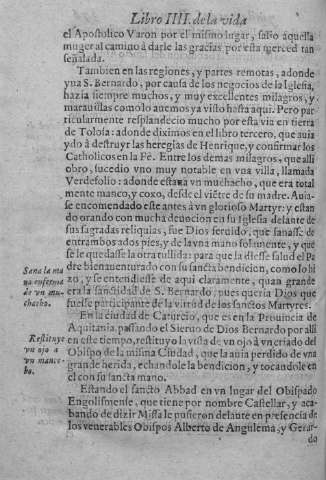 Libro IIII. de la vida
el Apostolico Varon por el mismo lugar, salio aquella
muger al camino à darle las gracias por esta merced tan
señalada.
Tambien en las regiones, y partes remotas, adonde
yua S. Bernardo, por causa de los negocios de la Iglesia,
hazia siempre muchos, y muy excellentes milagros, y
marauillas como lo auemos ya visto hasta aqui. Pero par
ticularmente resplandecio mucho por esta via en tierra
de Tolosa: adonde diximos en el libro tercero, que auia
ydo à destruyr las heregias de Henrique, y confirmar los
Catholicos en la Fè. Entre los demas milagros, que alli
obro, sucedio vno muy notable en vna villa, llamada
Verdefolio: adonde estaua vn muchacho, que era total
mente manco, y coxo, desde el viẽtre de su madre. Auia-
se encomendado este antes à vn glorioso Martyr: y estan
do orando con mucha deuocion en su Iglesia delante de
sus sagradas reliquias, fue Dios seruido, que sanasse de
entrambos ados pies, y de la vna mano solamente, y que
se le quedasse la otra tullida: para que la diesse salud el Pa
dre bienauenturado con su sancta bendicion, como lo hi
zo, y se entendiesse de aqui claramente, quan grande
era la sanctidad de S. Bernardo, pues queria Dios que
fuesse participante de la virtud de los sanctos Martyres.
Sana la ma
no enferma
de vn mu-
chacho.
En la ciudad de Caturcio, que es en la Prouincia de
Aquitania, passando el Sieruo de Dios Bernardo por alli
en este tiempo, restituyo la vista de vn ojo à vn criado del
Obispo de la misma Ciudad, que la auia perdido de vna
grande herida, echandole la bendicion, y tocandole en
el con su sancta mano.
Restituye
vn ojo a
vn mance-
bo.
Estando el sancto Abbad en vn lugar del Obispado
Engolismense, que tiene por nombre Castellar, y aca-
bando de dizir Missa le pusieron delante en presencia de
los venerables Obispos Alberto de Angulema, y Gerar-
do